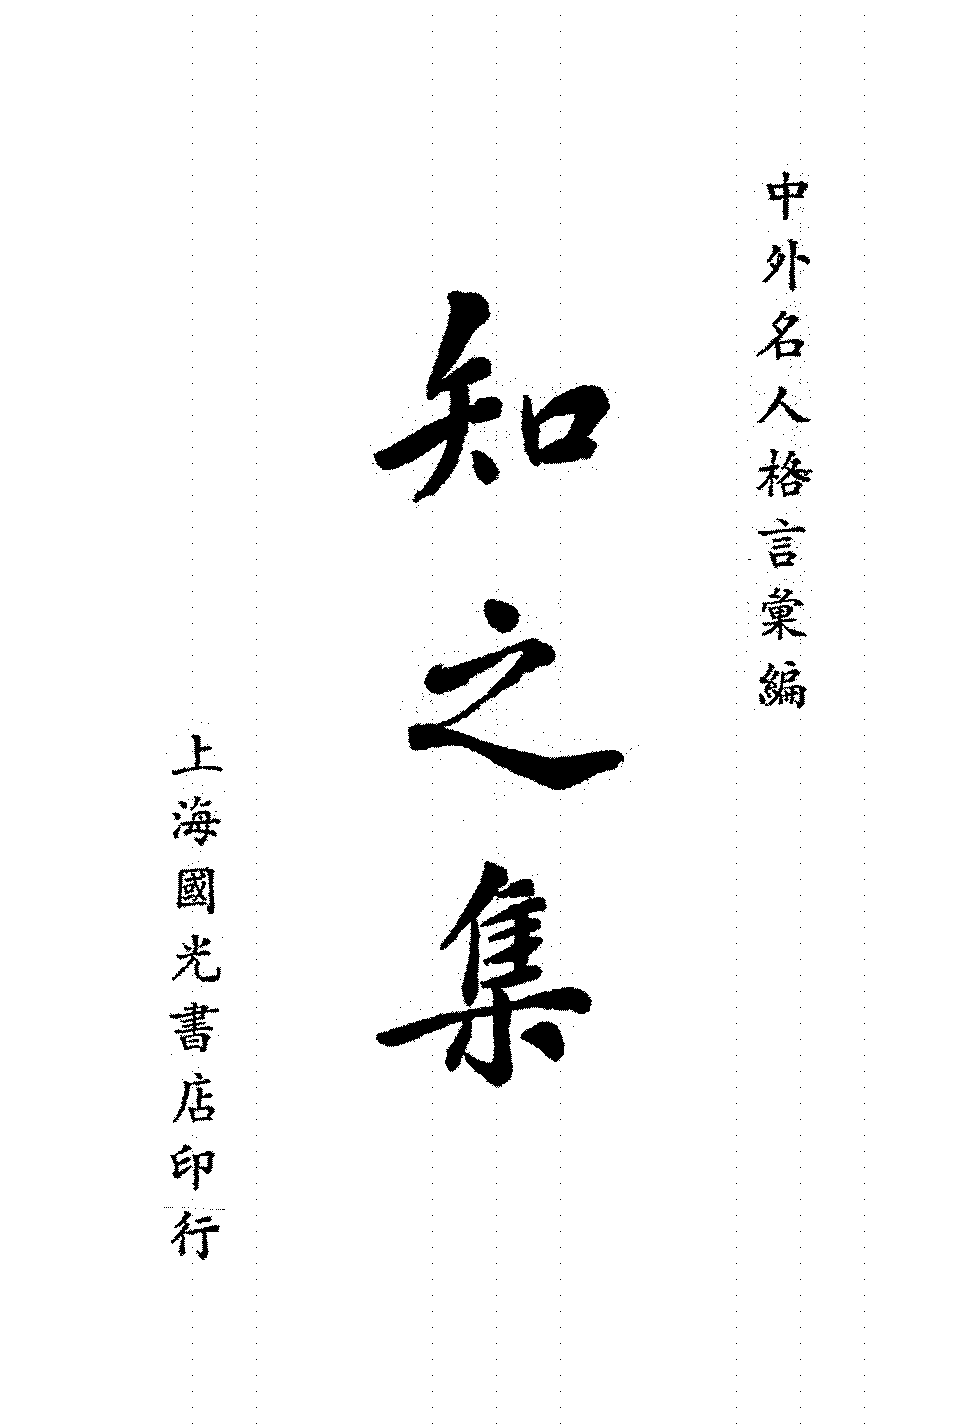 中外名人格言彙編
知之集
上海國光書店印行